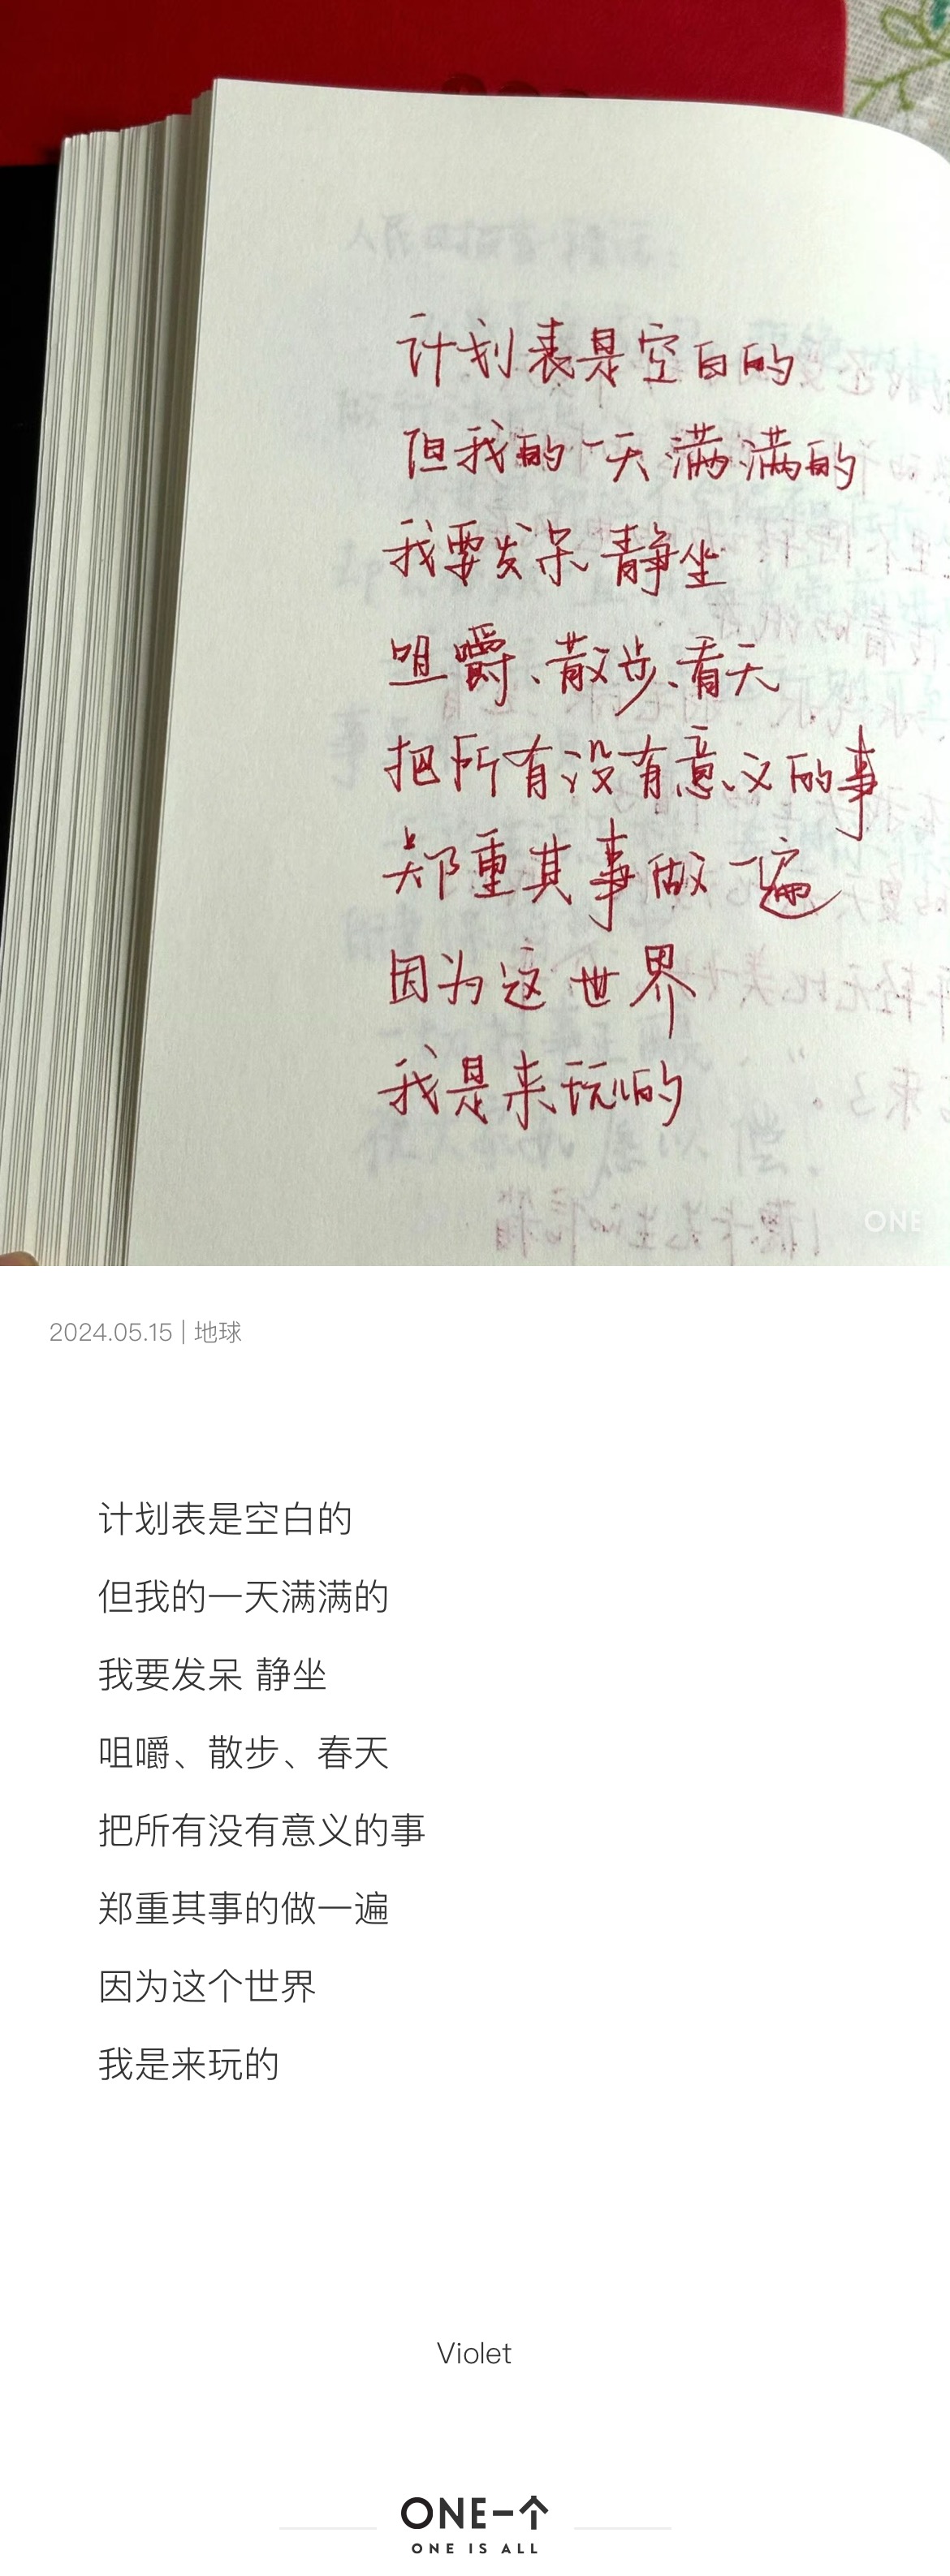 计划表是空白的
但我的一天满满的
我要发呆 静坐
咀嚼、散步、看天
把所有没有意义的事
郑重其事做一遍
因为这世界
我是来玩儿的
ONE
2024.05.15 | 地球
计划表是空白的
但我的一天满满的
我要发呆 静坐
咀嚼、散步、春天
把所有没有意义的事
郑重其事的做一遍
因为这个世界
我是来玩的
Violet
ONE一个
ONE IS ALL